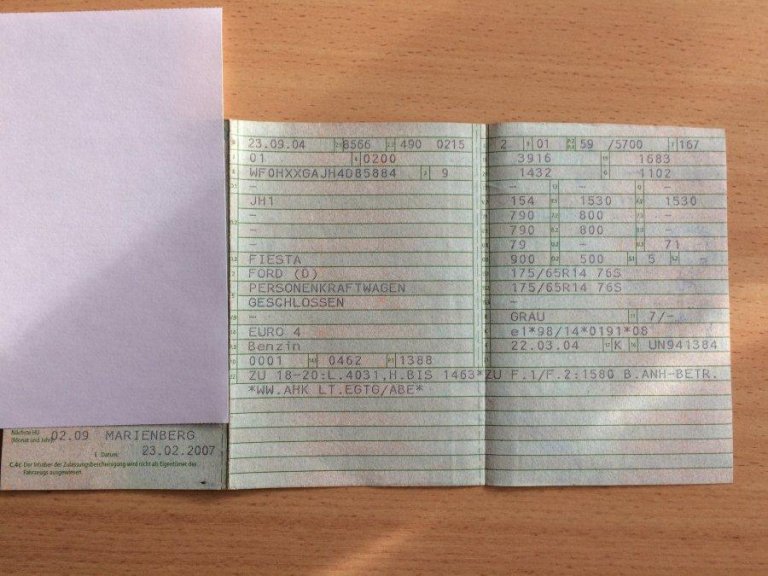 23.09.04 8566 490 0215
01 0200
WF0HXXGAJH4D85884 9
-
JH1
-
-
-
FIESTA
FORD (D)
PERSONENKRAFTWAGEN
GESCHLOSSEN
-
EURO 4
Benzin
0001 0462 1388
ZU 18-20:L.4031,H.BIS 1463*ZU F.1/F.2:1580 B.ANH-BETR.
*WW.AHK LT.EGTG/ABE*
2 01 59 /5700 167
3916 1683
1432 1102
- - -
154 1530 1530
790 800 -
790 800 -
79 - 71
900 500 5 -
175/65R14 76S
175/65R14 76S
-
GRAU 7/-
e1*98/14*0191*08
22.03.04 K UN941384
Nächste HU
(Monat und Jahr) 02.09 MARIENBERG
I Datum: 23.02.2007
C.4c Der Inhaber der Zulassungsbescheinigung wird nicht als Eigentümer des
Fahrzeugs ausgewiesen.